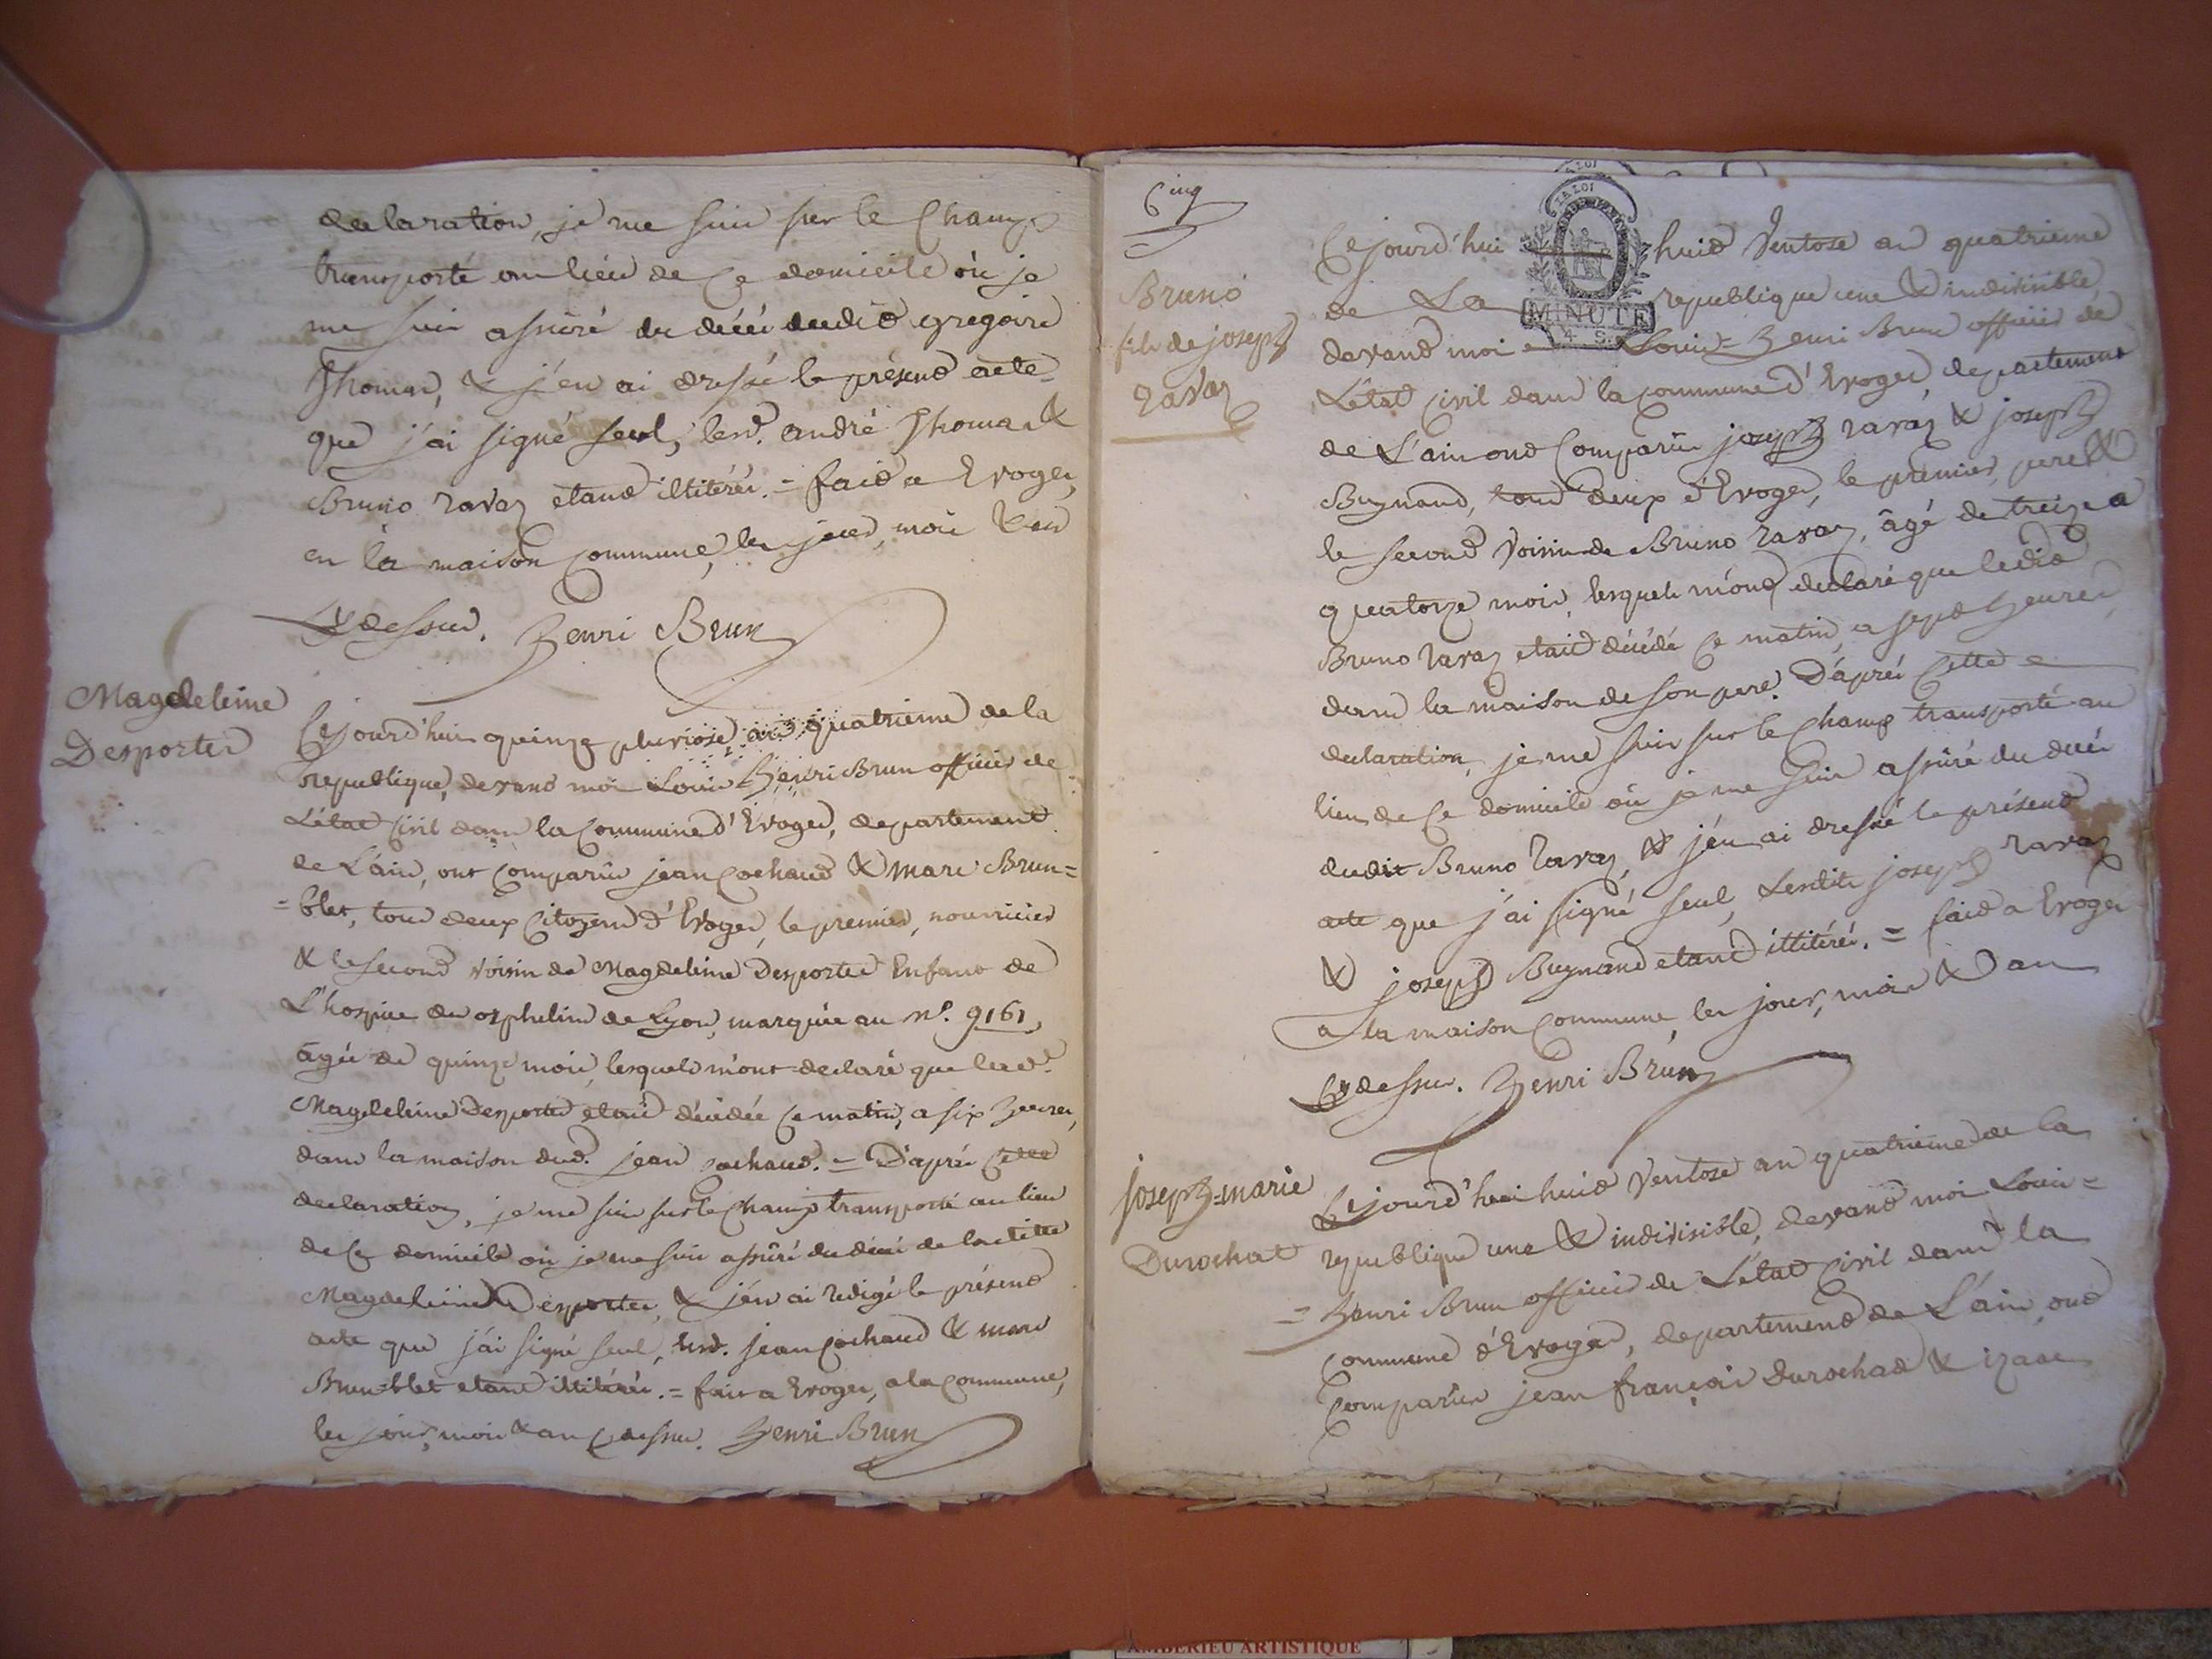 declaration, je me suis sur le Champ
transporté au lieu de Ce domicile où je
me suis assuré du décéz dudit gregoire
Thomas, & j'en ai dressé le présent acte
que j'ai signé seul, lesd. andré Thomas &
Bruno ravaz etant illitérés. = fait a Evoges,
en la maison Commune, les jour, mois & an
Cydessus. Henri Brun
Magdeleine
Desportes
Cejourd'hui quinze pluviose, an quatrieme de la
republique, devant moi Louis Henri Brun officier de
L'état Civil dans la Commune d'Evoges, departement
de L'ain, ont Comparus jean Cochaud & Marc Brun=
=blet, tous deux Citoyens d'Evoges, le premier, nourricier
& le second voisin de Magdeleine Desportes Enfant de
L'hospice des orphelins de Lyon, marquée au n°. 9161,
âgée de quinze mois, lesquels m'ont declaré que lad.
Magdeleine Desportes etait décédée Ce matin, a six heures,
dans la maison dud. jean Cochaud. = D'après Cette
declaration, je me suis sur le Champ transporté au lieu
de Ce domicile où je me suis assûré du décéz de ladite
Magdeleine Desportes, & j'en ai redigé le présent
acte que j'ai signé seul, lesd. jean Cochaud & marc
Brun=blet etant illitérés. = fait a Evoges, a la Commune,
les jour, mois & an Cydessus. Henri Brun
Cinq
Bruno
fils de joseph
ravaz
LA LOI
MINUTE
4 S.
Cejourd'hui huit Ventose an quatrieme
de La republique une & indivisible
devant moi Louis=henri Brun officier de
L'état Civil dans la Commune d'Evoges, departement
de L'ain ont Comparus joseph ravaz & joseph
Bugnand, tous deux d'Evoges, le premier, pere &
le second voisin de Bruno ravaz, âgé de treize a
quatorze mois, lesquels m'ont declaré que ledit
Bruno ravaz etait décédé Ce matin, a sept heures
dans la maison de son pere. D'après Cette
declaration, je me suis sur le Champ transporté au
lieu de Ce domicile où je me suis assûré du décéz
dudit Bruno ravaz, & j'en ai dressé le présent
acte que j'ai signé seul, Lesdits joseph ravaz
& joseph Bugnand etant illitérés. = fait a Evoges
a la maison Commune, les jour, mois & an
Cydessus. Henri Brun
joseph=marie
Durochat
Cejourd'hui huit Ventose an quatrieme de la
republique une & indivisible, devant moi Louis=
=Henri Brun officier de L'état Civil dans la
Commune d'Evoges, departement de L'ain, ont
Comparus jean françois Durochat & izaac
AMBERIEU ARTISTIQUE